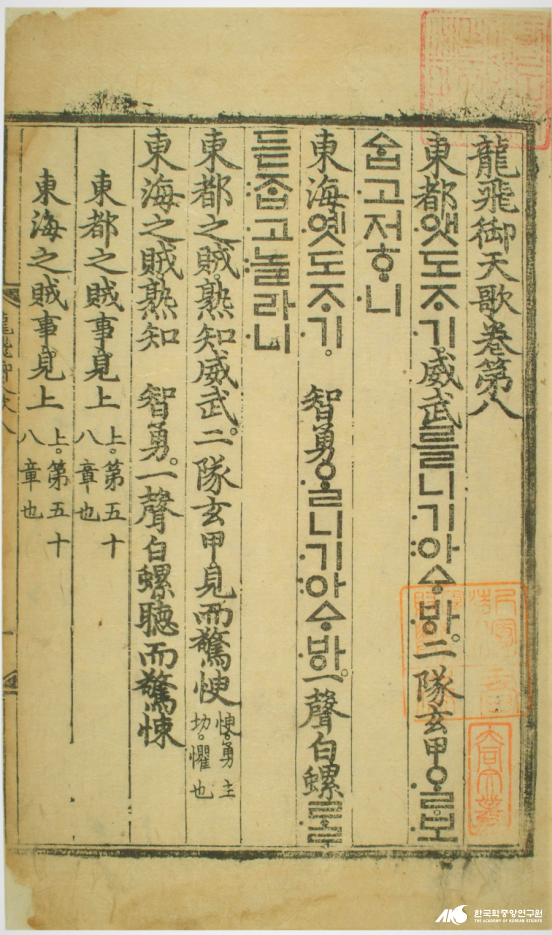 龍飛御天歌卷第八
東都앳도ᄌᆞ기威武를니기아ᅀᆞᄫᅡ。二隊玄甲ᄋᆞᆯ보
ᅀᆞᆸ고저ᄒᆞ니
東海옛도ᄌᆞ기。 智勇ᄋᆞᆯ니기아ᅀᆞᄫᅡ。一聲白螺ᄅᆞᆯ
듣ᄌᆞᆸ고놀라니
東都之賊熟知威武。二隊玄甲見而驚
勇主
切。懼也
東海之賊熟知 智勇。一聲白螺聽而驚悚
東都之賊事。見上
上。第五十
八章也
東海之賊事。見上
上。第五十
八章也
한국학중앙연구원
THE ACADEMY OF KOREAN STUDIES